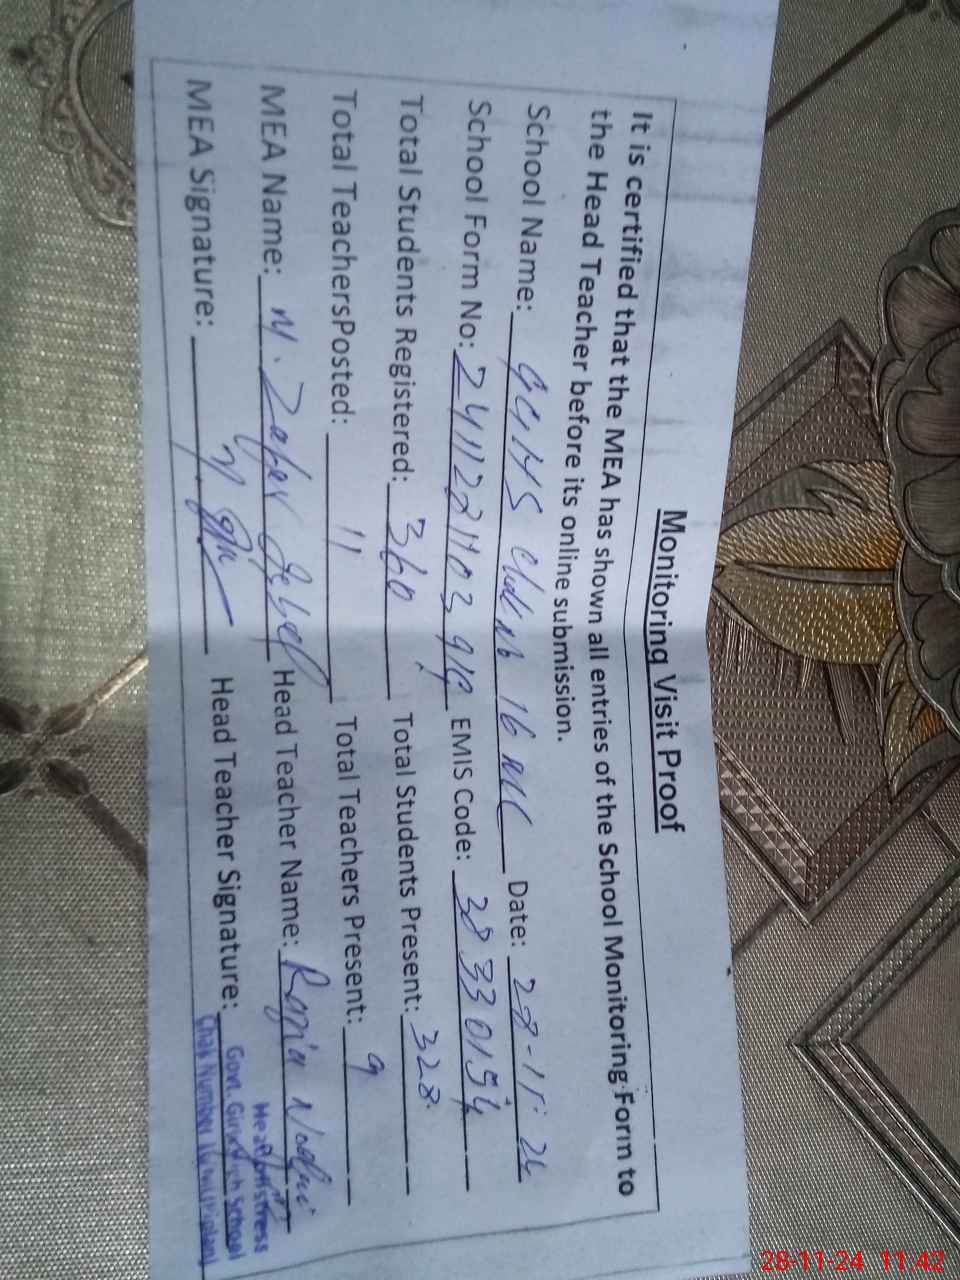 Monitoring Visit Proof
It is certified that the MEA has shown all entries of the School Monitoring Form to
the Head Teacher before its online submission.
School Name: GGHS Chak No 16 Date: 28-11-24
School Form No: 2411221103 EMIS Code: 38330154
Total Students Registered: 360 Total Students Present: 328
Total TeachersPosted: 11 Total Teachers Present: 9
MEA Name: M. Zafar Iqbal Head Teacher Name: Razia
MEA Signature: Head Teacher Signature:
Headmistress
Govt. Girls High School
Chak Number
28-11-24 11:42